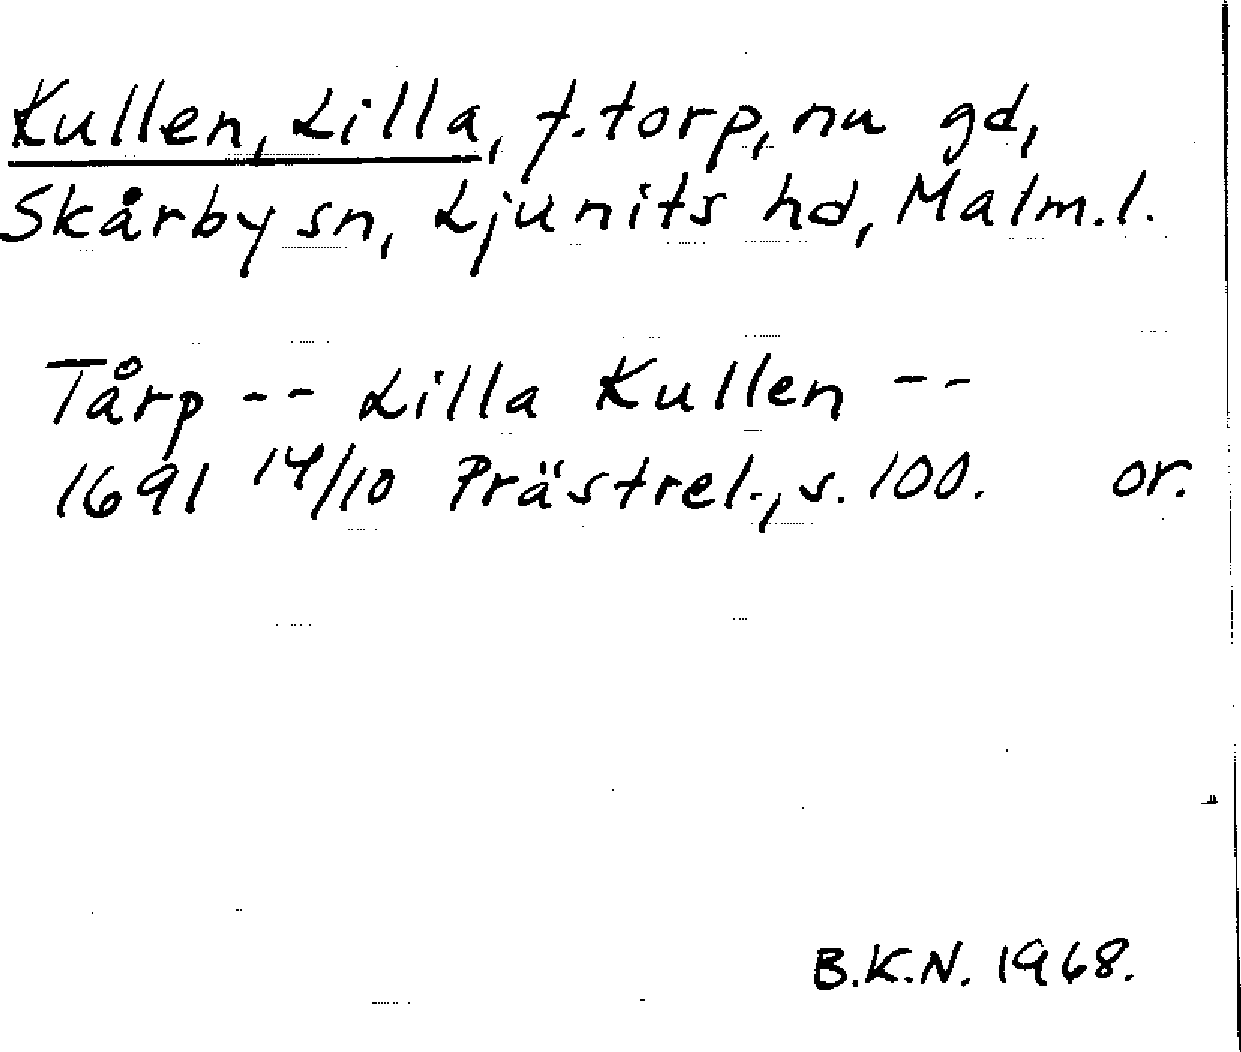 Kullen, Lilla, f. torp, nu gd,
Skårby sn, Ljunits hd, Malm. l.
Tårp -- Lilla Kullen --
1691 14/10 Prästrel., s. 100. or.
B.K.N. 1968.